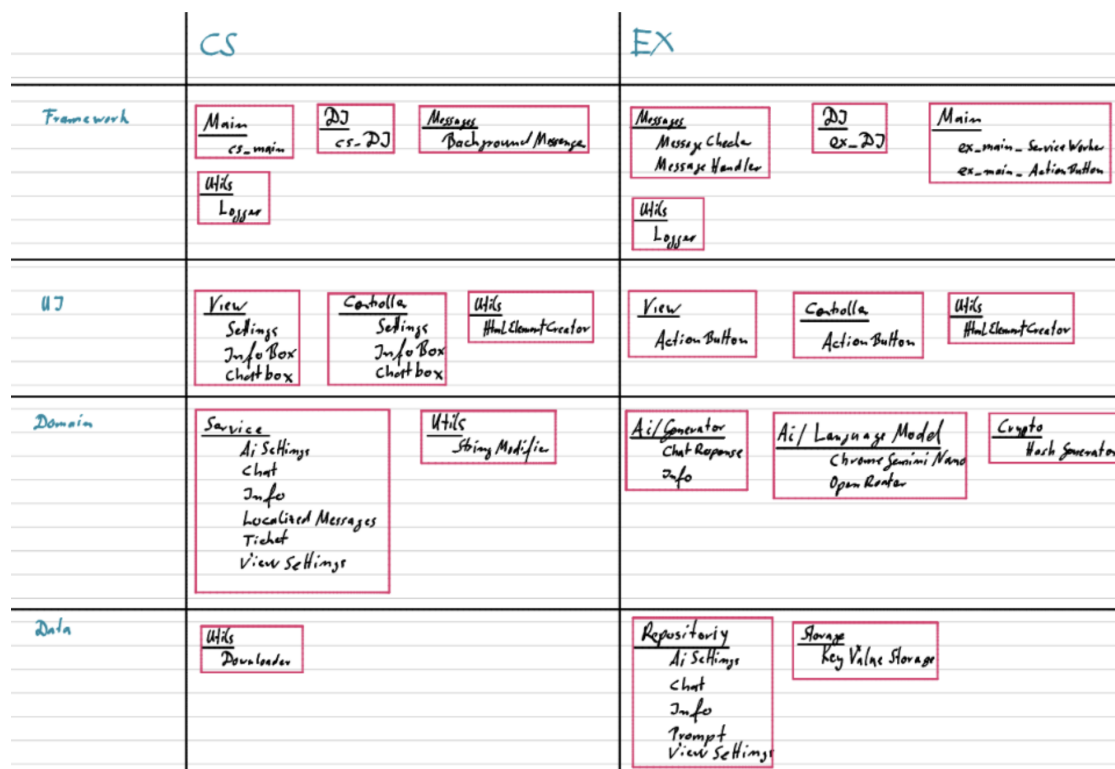 CS
EX
Framework
Main
cs_main
DI
cs_DI
Messages
Background Messenger
Utils
Logger
Messages
Message Checker
Message Handler
DI
ex_DI
Main
ex_main_ServiceWorker
ex_main_ActionButton
Utils
Logger
UI
View
Settings
InfoBox
Chatbox
Controller
Settings
InfoBox
Chatbox
Utils
HtmlElementCreator
View
ActionButton
Controller
ActionButton
Utils
HtmlElementCreator
Domain
Service
Ai Settings
Chat
Info
Localized Messages
Ticket
View Settings
Utils
String Modifier
Ai/Generator
Chat Reponse
Info
Ai/Language Model
Chrome Gemini Nano
Open Router
Crypto
Hash Generator
Data
Utils
Downloader
Repositoriy
Ai Settings
Chat
Info
Prompt
View Settings
Storage
Key Value Storage